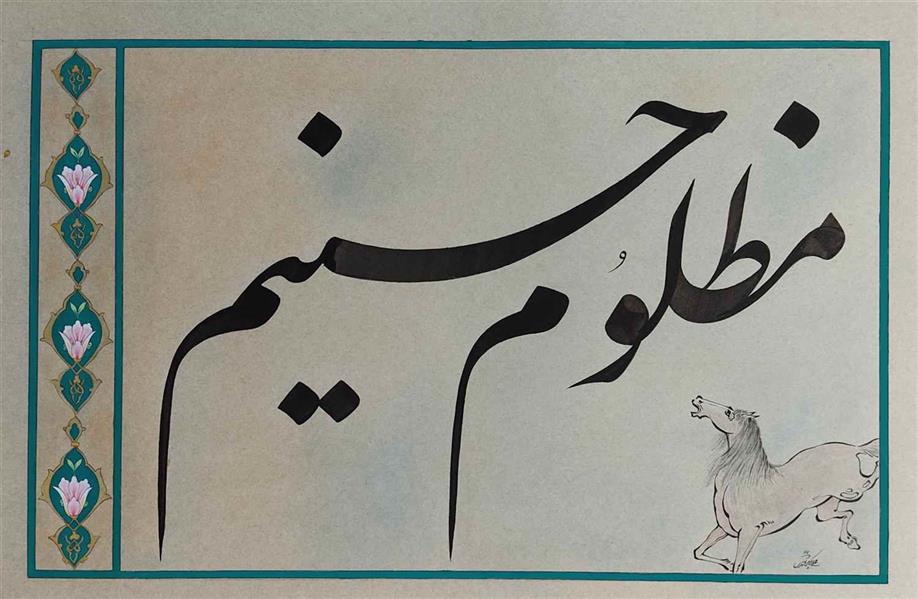 مظلُوم حسینم